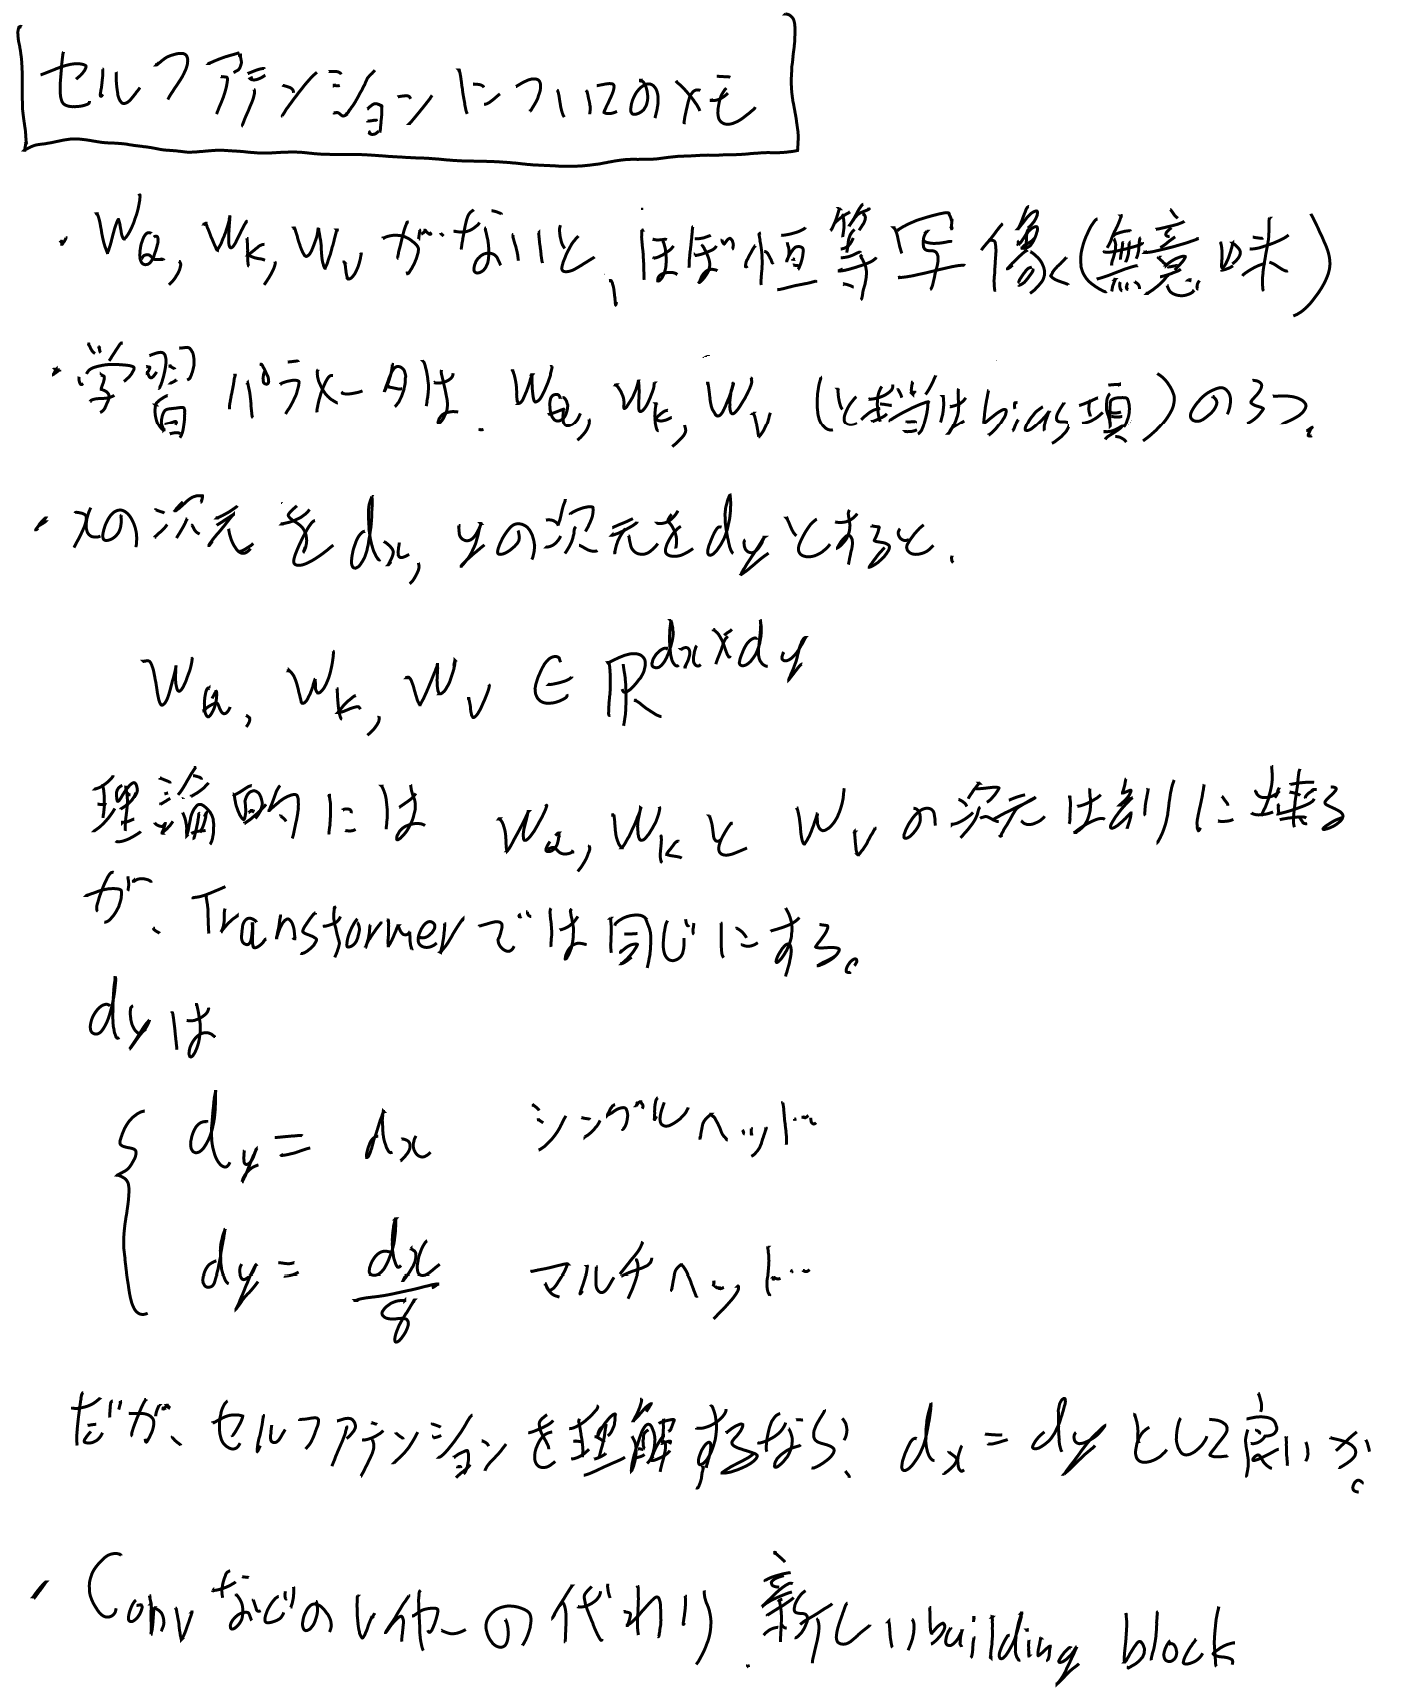 セルフアテンションについてのメモ
・W_Q, W_K, W_V がないと、ほぼ恒等写像(無意味)
・学習パラメータは、W_Q, W_K, W_V (と本当はbias項)の3つ。
・xの次元をdx, yの次元をdyとすると、
W_Q, W_K, W_V ∈ ℝ^{dx×dy}
理論的には W_Q, W_Kと W_Vの次元は別に出来る
が、Transformerでは同じにする。
dyは
{ dy = dx シングルヘッド
dy = dx/8 マルチヘッド
だが、セルフアテンションを理解するなら、dx = dyとして良いか。
・Convなどのレイヤーの代わり、新しいbuilding block